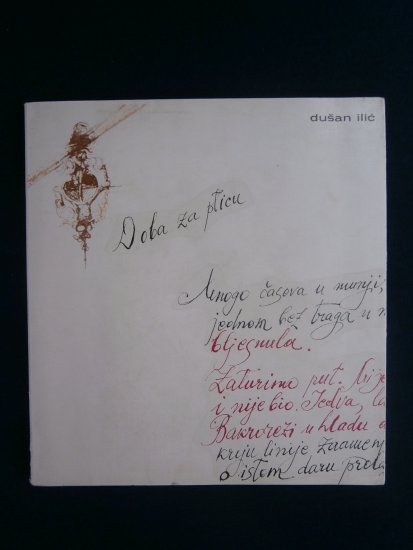 dušan ilić
Doba za pticu
Mnogo časova u munji,
jednom bez traga u
bljesnula.
Zaturimo put. Nije
i nije bio. Jedva,
Bakrorezi u hladu
kriju linije
o istom daru